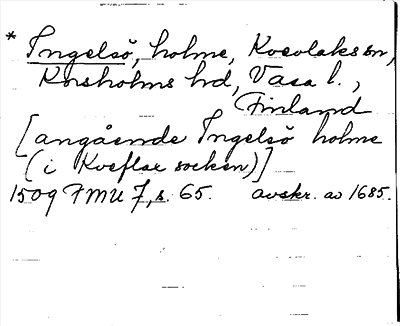 * Ingelsö, holme, Kvevlaks sn,
Korsholms hd, Vasa l.,
Finland
[angående Ingelsö holme
(i Kveflax socken)]
1509 FMU 7, s. 65. avskr. av 1685.